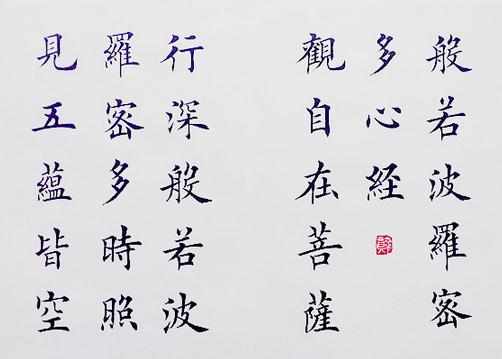 般若波羅密
多心経
觀自在菩薩
行深般若波
羅密多時照
見五蘊皆空